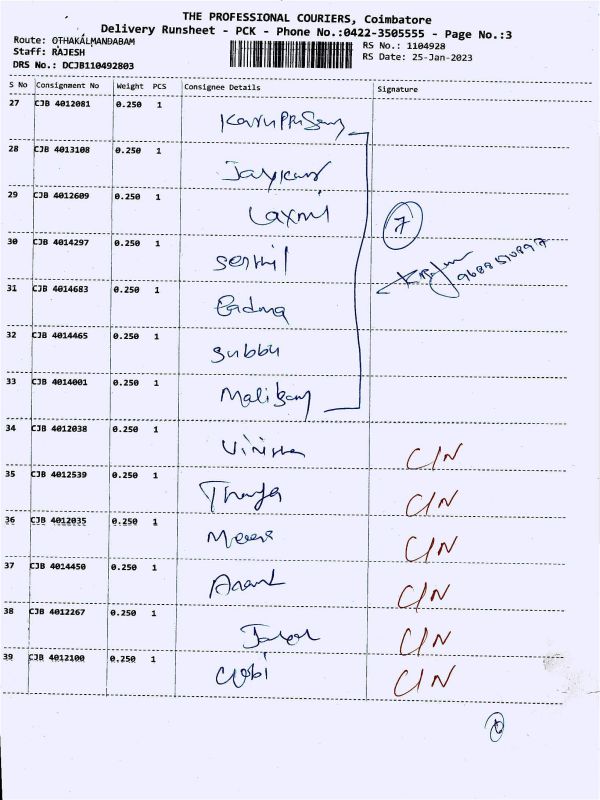 THE PROFESSIONAL COURIERS, Coimbatore
Delivery Runsheet - PCK - Phone No.:0422-3505555 - Page No.:3
Route: OTHAKALMANDABAM
Staff: RAJESH
DRS No.: DCJB110492803
RS No.: 1104928
RS Date: 25-Jan-2023
S No Consignment No Weight PCS Consignee Details Signature
27 CJB 4012081 0.250 1
28 CJB 4013108 0.250 1 Jaykumar
29 CJB 4012609 0.250 1 Laxmi
7
30 CJB 4014297 0.250 1 Senthil
31 CJB 4014683 0.250 1 Padma
32 CJB 4014465 0.250 1 Subbu
33 CJB 4014001 0.250 1
34 CJB 4012038 0.250 1 Vinisha C/N
35 CJB 4012539 0.250 1 C/N
36 CJB 4012035 0.250 1 Meera C/N
37 CJB 4014450 0.250 1 Anand C/N
38 CJB 4012267 0.250 1 C/N
39 CJB 4012100 0.250 1 Gobi C/N